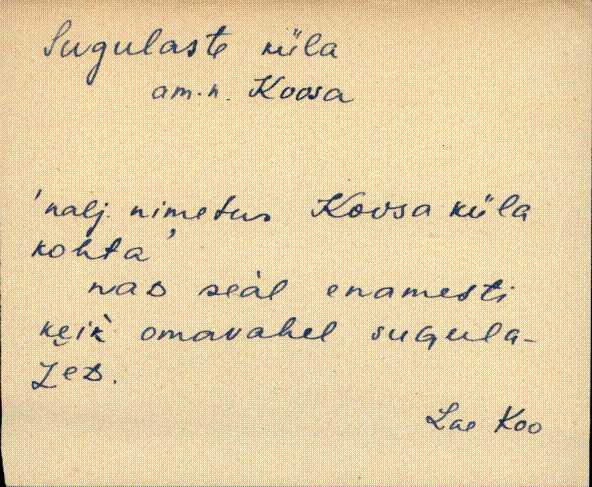 Sugulaste küla
am.n. Koosa
'nalj. nimetus Koosa küla
kohta'
naᴅ seàl enamesti
ke̮ik omavahel sugula-
ʒeᴅ.
Lae Koo